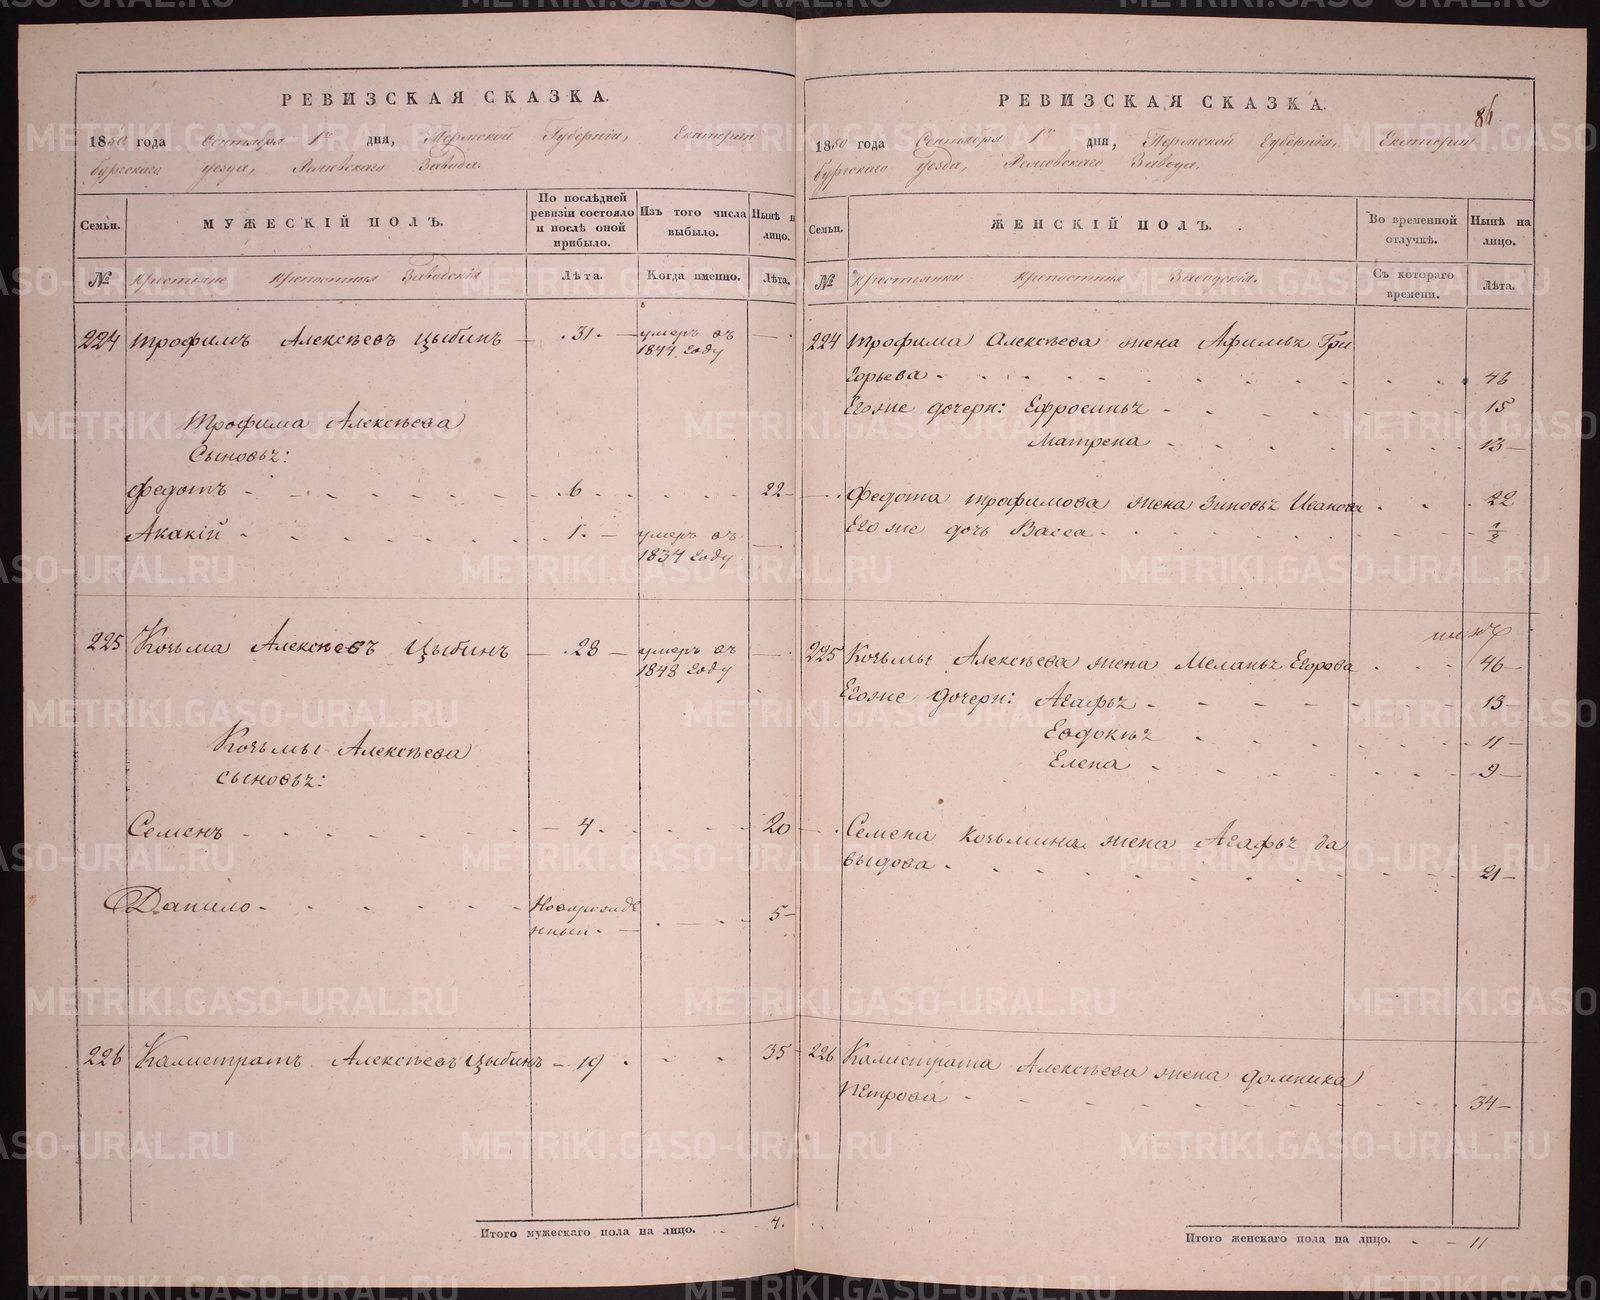 РЕВИЗСКАЯ СКАЗКА.
1850 года Сентября 1го дня, Пермской Губерніи, Екатерин
бургскаго уезда, Завода.
Семьи.
МУЖЕСКІЙ ПОЛЪ.
По послѣдней ревизіи состояло и послѣ оной прибыло.
Изъ того числа выбыло.
Нынѣ на лицо.
№
Крестьяне крепостныя Заводскія
Лѣта.
Когда именно.
Лѣта.
224 Трофимъ Алексѣевъ Цыбинъ — 31 — умеръ въ
1844 году
Трофима Алексѣева
Сыновьг:
Федотъ 6 22
Акакій 1 — умеръ въ
1834 году
225 Козьма Алексѣевъ Цыбинъ — 28 — умеръ въ
1848 году
Козьмы Алексѣева
сыновьг:
Семенъ — 4 20
Данило Новорожде
нный — 5
226 Калистратъ Алексѣевъ Цыбинъ — 19 35
Итого мужескаго пола на лицо. 4.
РЕВИЗСКАЯ СКАЗКА.
86.
1850 года Сентября 1го дня, Пермской Губерніи, Екатерин
бургскаго уезда, Завода.
Семьи.
ЖЕНСКІЙ ПОЛЪ.
Во временной отлучкѣ.
Нынѣ на лицо.
№
Крестьянки крепостныя Заводскія.
Съ котораго времени.
Лѣта.
224 Трофима Алексѣева жена Афимьг Гри
горьева 46
Егоже дочери: Ефросиньг 15
Матрена 13
Федота Трофимова жена Зиновьг Иванова 22
Его же дочь Васса 1/2
225 Козьмы Алексѣева жена Меланьг Егорова 46
Егоже дочери: Агафьг 13
Евдокѣг 11
Елена 9
Семена Козьмина жена Агафьг Да
выдова 21
226 Калистрата Алексѣева жена Домника
Петрова 34
Итого женскаго пола на лицо. 11
METRIKI.GASO-URAL.RU